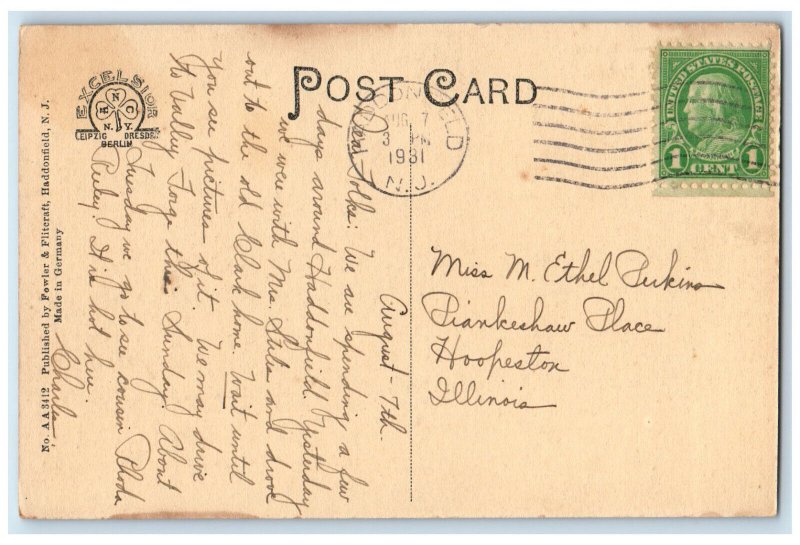 POST CARD
EXCELSIOR
H N C
N.Y.
LEIPZIG DRESDEN
BERLIN
No. A A 3412 Published by Fowler & Flitcraft, Haddonfield, N. J.
Made in Germany
HADDONFIELD
AUG 7
3 PM
1931
N.J.
UNITED STATES POSTAGE
FRANKLIN
1 CENT 1
August - 7th
Dear Folks: We are spending a few
days around Haddonfield. Yesterday
we were with Mrs. Stiles and drove
out to the old Clark home. Wait until
you see pictures of it. We may drive
to Valley Forge this Sunday. About
Tuesday we go to see cousin Rhoda
Perley. It is hot here.
Charles
Miss M. Ethel Perkins
Piankeshaw Place
Hoopeston
Illinois